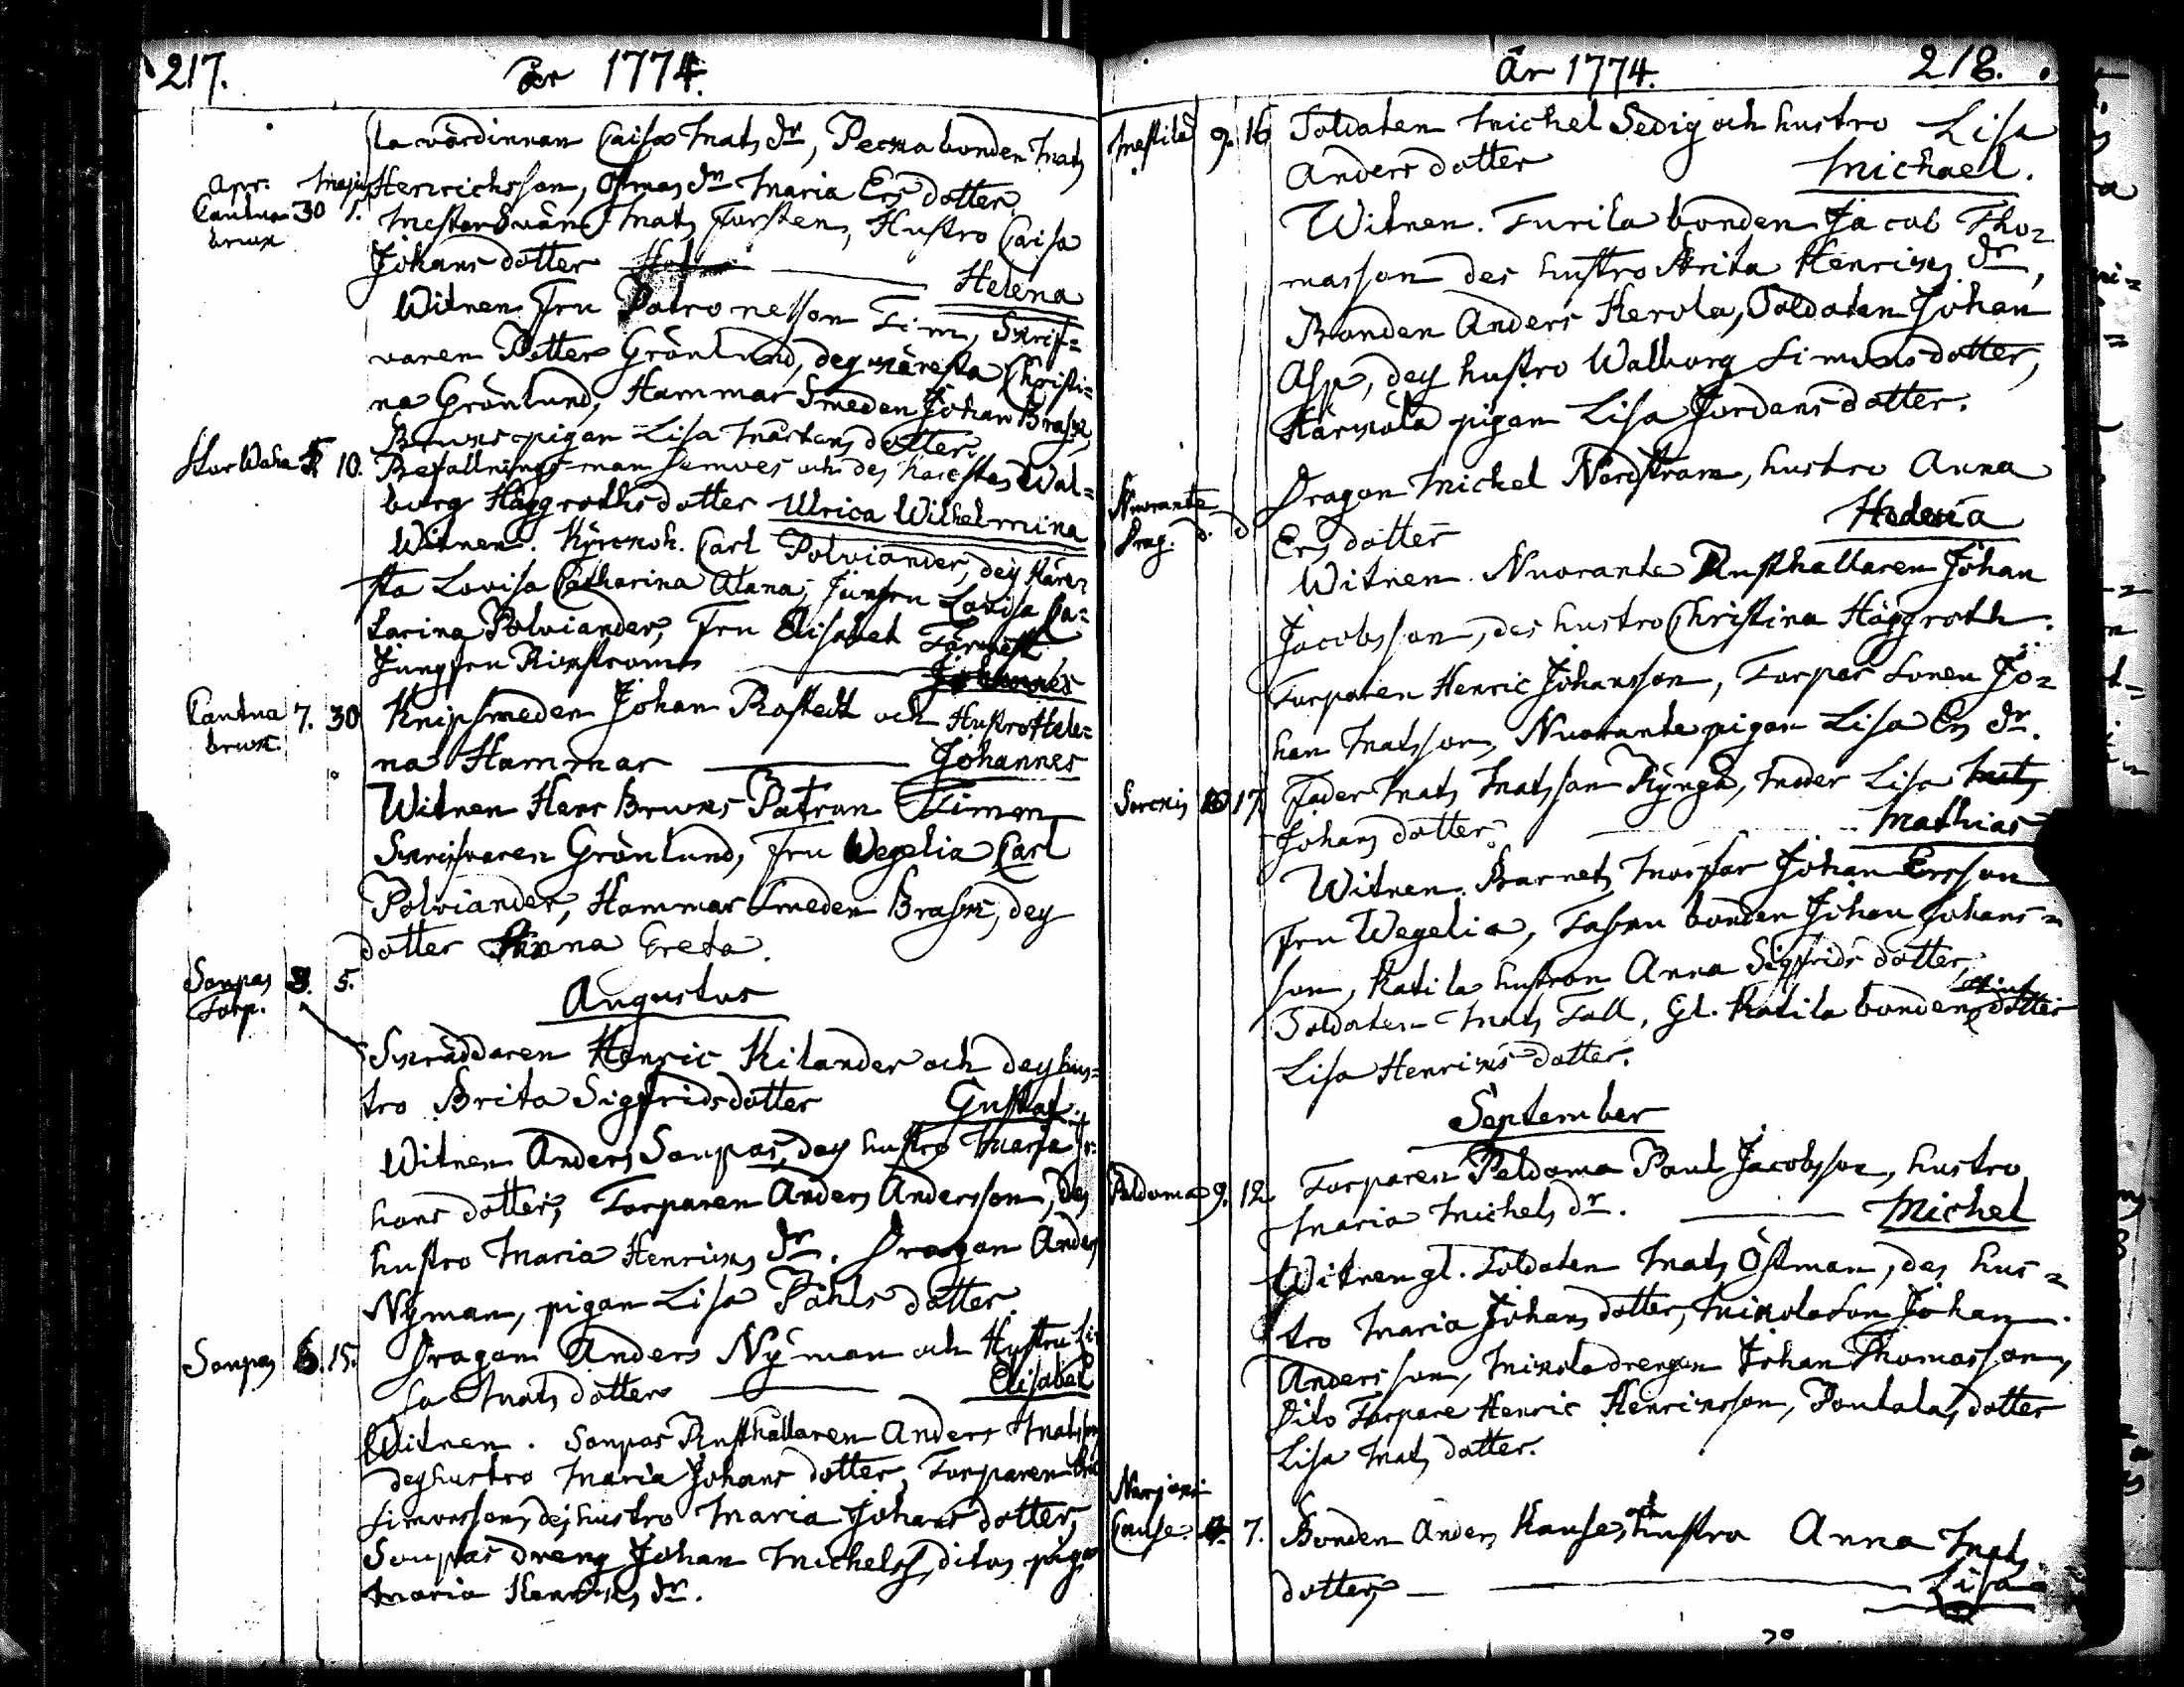 217. År 1774.
la värdinnan Caisa Mats dr, Pecka bonden Mats
Henrichsson, Mats dr Maria Ers dotter.
Apr. Majus
Cautua bruk 30 1. Mats Forsten, Hustro Caisa
Johans dotter Helena
Witnen Fru Patronessan Timm, Skrif=
varen Petter Grönlund, des käresta Christi=
na Grönlund, Hammar Smeden Johan Brask,
Bruks pigan Lisa Mårtens dotter.
Stor Waha 10. Befallningsman och des käresta Wal=
borg Häggroths dotter Ulrica Wilhelmina
Witnen. Kyrckoh. Carl Polviander, des käre=
sta Lovisa Catharina Alana, Jungfru Lovisa Ca=
tarina Polviander, Fru Elisabet
Jungfru Johannes
Cautua bruk. 7. 30 Knipsmeden Johan Rostedt och Hustro Hele=
na Hammar Johannes
Witnen Herr Bruks Patron Timm
Skrifvaren Grönlund, Fru Wegelia Carl
Polviander, Hammar Smeden Brask, des
dotter Anna Greta.
Augustus
Soupas Torp. 3. 5.
Skräddaren Henric Kilander och des hus=
tro Brita Sigfridsdotter Gustaf.
Witnen Anders Soupas, des hustro Maria Jo=
hans dotter, Torparen Anders Andersson, des
hustro Maria Henriks dr. Dragon Anders
Nyman, pigan Lisa Påhls dotter
Soupas 15. Dragon Anders Nyman och Hustru Li=
sa Mats dotter Elisabet
Witnen. Soupas Rusthållaren Anders Matsson
des hustro Maria Johans dotter, Torparen
Simonsson, des hustro Maria Johans dotter,
Soupas dreng Johan Michelss, ditos pigan
Maria Henriks dr.
År 1774. 218.
Mestilä 9. 16 Soldaten Michel Sedig och hustro Lisa
Anders dotter Michael.
Witnen. Turila bonden Jacob Tho=
masson des hustro Brita Henriks dr,
Bonden Anders Herola, Soldaten Johan
Asp, des hustro Walborg Simons dotter,
Härkölä pigan Lisa Jordans dotter.
Nuoranta Drag. d. d Dragon Michel Nordstram, hustro Anna
Ers dotter Hedevia
Witnen. Nuoranta Rusthållaren Johan
Jacobsson, des hustro Christina Häggroth.
Torparen Henric Johansson, Torpar Sonen Jo=
han Matsson, Nuoranta pigan Lisa Ers dr.
17 Fader Mats Matsson Kyngä, Moder Lisa
Johans dotter. Mathias
Witnen. Barnets Morfar Johan Ersson
Fru Wegelia, bonden Johan Johans=
son, Katila hustron Anna Sigfrids dotter,
Soldaten Mats Tall, Gl. Katila bondens dotter
Lisa Henriks dotter.
September
Peldoma 9. 12. Torparen Peldoma Paul Jacobsson, hustro
Maria Michels dr. Michel
Witnen gl. Soldaten Mats Östman, des hus=
tro Maria Johans dotter, Mikola Son Johan
Andersson, Mikola drengen Johan Thomasson,
Dito Torpare Henric Henriksson, Poutala, dotter
Lisa Mats dotter.
Cause. 7. Bonden Anders Kause, och hustro Anna Mats
dotter, Lisa